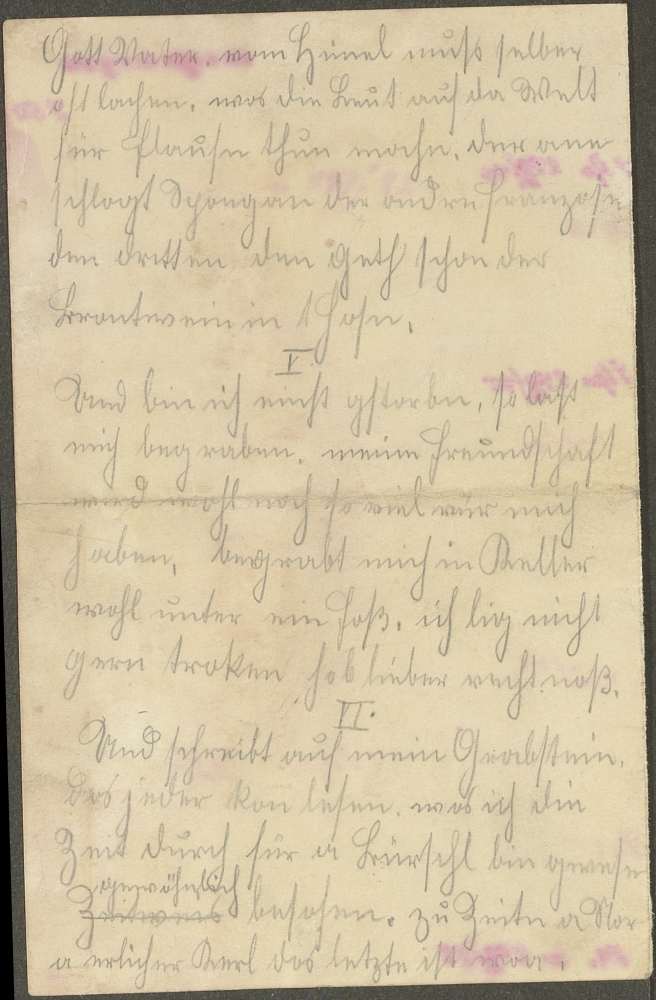 Gott Vater. vom Himel muss selber
oft lachen, wos die Leut auf da Welt
für Flausn thun mochn, der ane
schlagt Spongan der ondre Franzosn
den dritten den geth schon der
Brontwein in d Hosn.
V.
Und bin ich einst gstorbn, so lost
mich begraben. meine Freundschaft
wird wohl noch so viel vür mich
haben, begrabt mich in Keller
wohl unter ein Foß. ich lig nicht
gern troken hob lieber recht noß.
VI.
Und schreibt auf mein Grabstein.
das jeder kon lesen. wos ich die
Zeit durch für a Bürschl bin gwesn
gewöhnlich
Zeitweis besofen. zu Zeitn a Nor
a erlicher Kerl dos letzte ist woa.